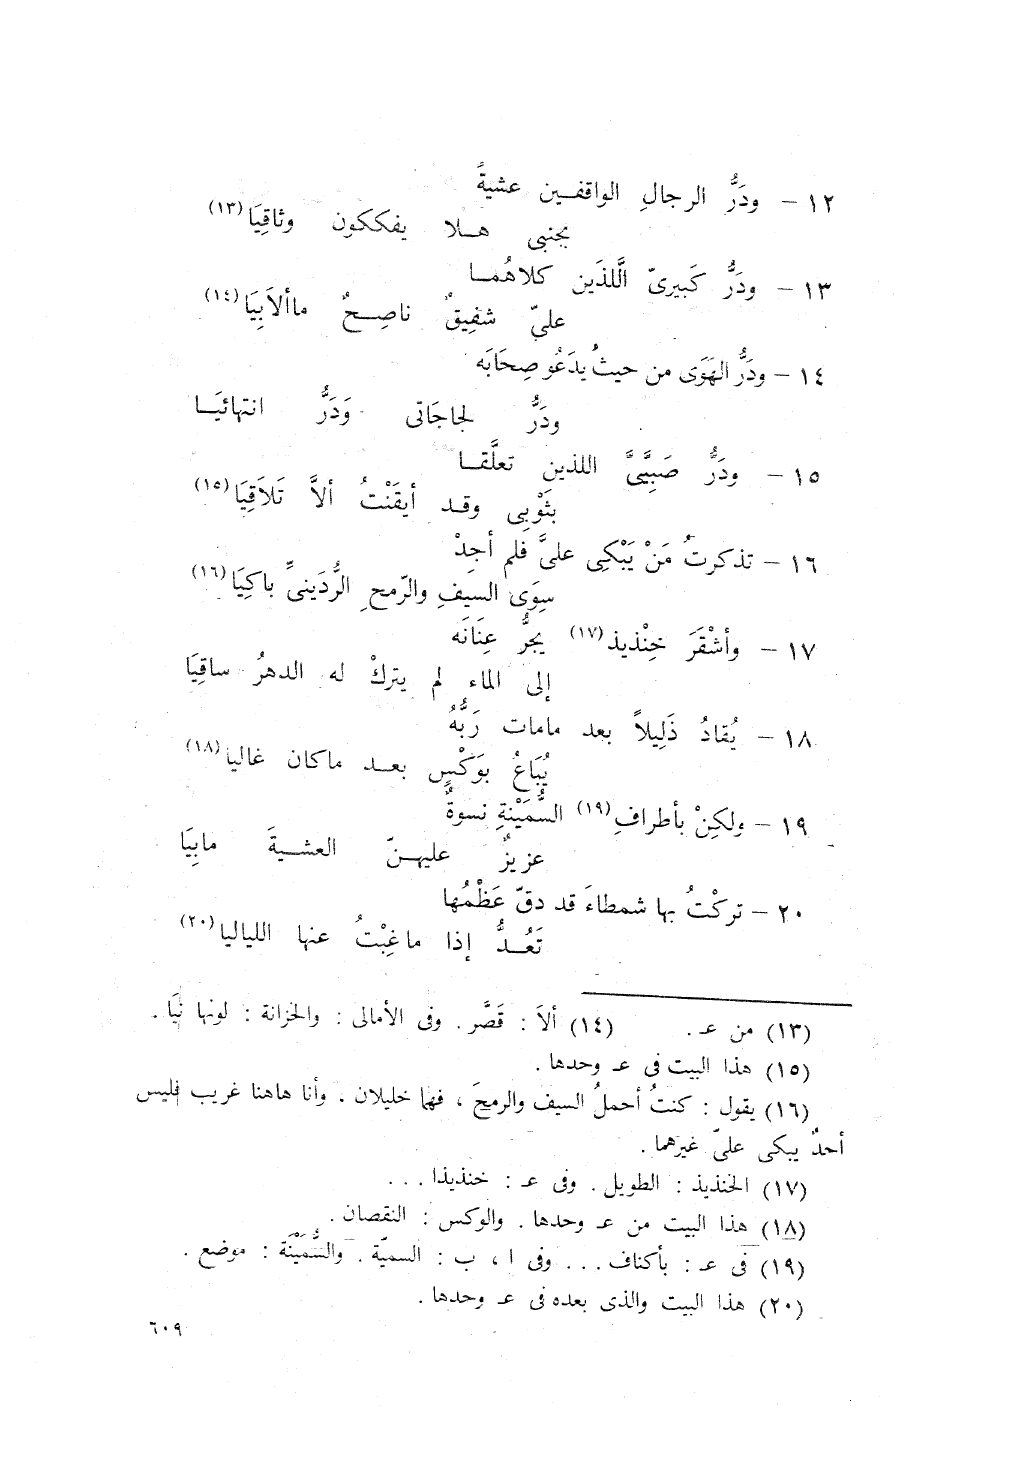 ١٢ – ودَرُّ الرجالِ الواقفـين عشيةً
بجنبى هـلا يفككون وثاقِيَا (١٣)
١٣ – ودَرُّ كَبيرىّ الَّلذَين كلاهُمـا
علىّ شفِيقٌ ناصِـحٌ ماألاَبِيَا (١٤)
١٤ – ودَرُّ الهَوَى من حيثُ يدَعُو صِحَابَه
ودَرُّ لجاجَاتى وَدَرُّ انتهائيَـا
١٥ – ودَرُّ صَبِيَّىَّ اللذينِ تعلَّقـا
بثَوْبِى وقـد أيقَنْتُ ألاَّ تَلاَقِيَا (١٥)
١٦ – تذكرتُ مَنْ يَبْكِى علىَّ فلم أجِدْ
سِوَى السيفِ والرّمحِ الرُّدَينىِّ باكِيَا (١٦)
١٧ – وأشْقَرَ خِنْذيذ (١٧) يجرُّ عِنَانَه
إلى الماء لم يتركْ له الدهرُ ساقِيَا
١٨ – يُقادُ ذَلِيلاً بعد مامات رَبُّهُ
يُبَاعُ بوَكْسٍ بعـد ماكان غاليا (١٨)
١٩ – ولكِنْ بأطرافِ (١٩) السُّمَيْنةِ نسوةٌ
عزيزٌ عليهـنّ العشـيةَ مابِيَا
٢٠ – تركْتُ بها شمطاءَ قد دقّ عَظْمُها
تَعُـدُّ إذا ماغِبْتُ عنها اللياليا (٢٠)
(١٣) من عـ . (١٤) ألاَ : قَصَّر . وفى الأمالى : والخزانة : لونها نيَا .
(١٥) هذا البيت فى عـ وحدها .
(١٦) يقول : كنتُ أحملُ السيف والرمحَ ، فهما خليلان . وأنا هاهنا غريب فليس
أحدٌ يبكى علىّ غيرهما .
(١٧) الخنذيذ : الطويل . وفى عـ : خنذيذا . . .
(١٨) هذا البيت من عـ وحدها . والوكس : النقصان .
(١٩) فى عـ : بأكناف . . . وفى ا ، ب : السميّة . والسُّمَيْنَة : موضع .
(٢٠) هذا البيت والذى بعده فى عـ وحدها .
٦٠٩